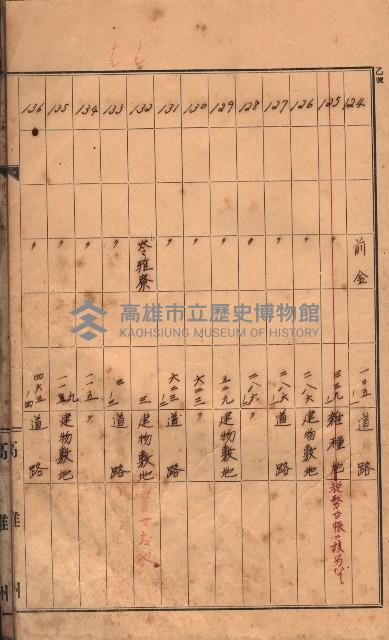 乙號
124 前金 一〇五ノ二 〃
125 〃 三二九ノ二 雜種地 稅務台帳ニ該当ナシ
126 〃 二八六 建物敷地
127 〃 二八六ノ二 道路
128 〃 二八六ノ三 〃
129 〃 五二九 建物敷地
130 〃 六二三 〃
131 〃 六二三ノ二 道路
132 苓雅寮 三 建物敷地
133 〃 三ノ二 道路
134 〃 一一五 〃
135 〃 一一五ノ九 建物敷地
136 〃 四六五ノ四 道路
高雄州
高雄州
高雄市立歷史博物館
KAOHSIUNG MUSEUM OF HISTORY